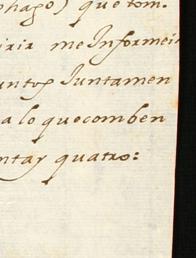 phago) que tom.
irir me Informeis
untos Iuntamen
a lo que comben
ntay quatro: